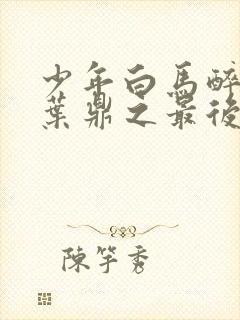 少年白馬醉
葉鼎之最後
陳竽秀